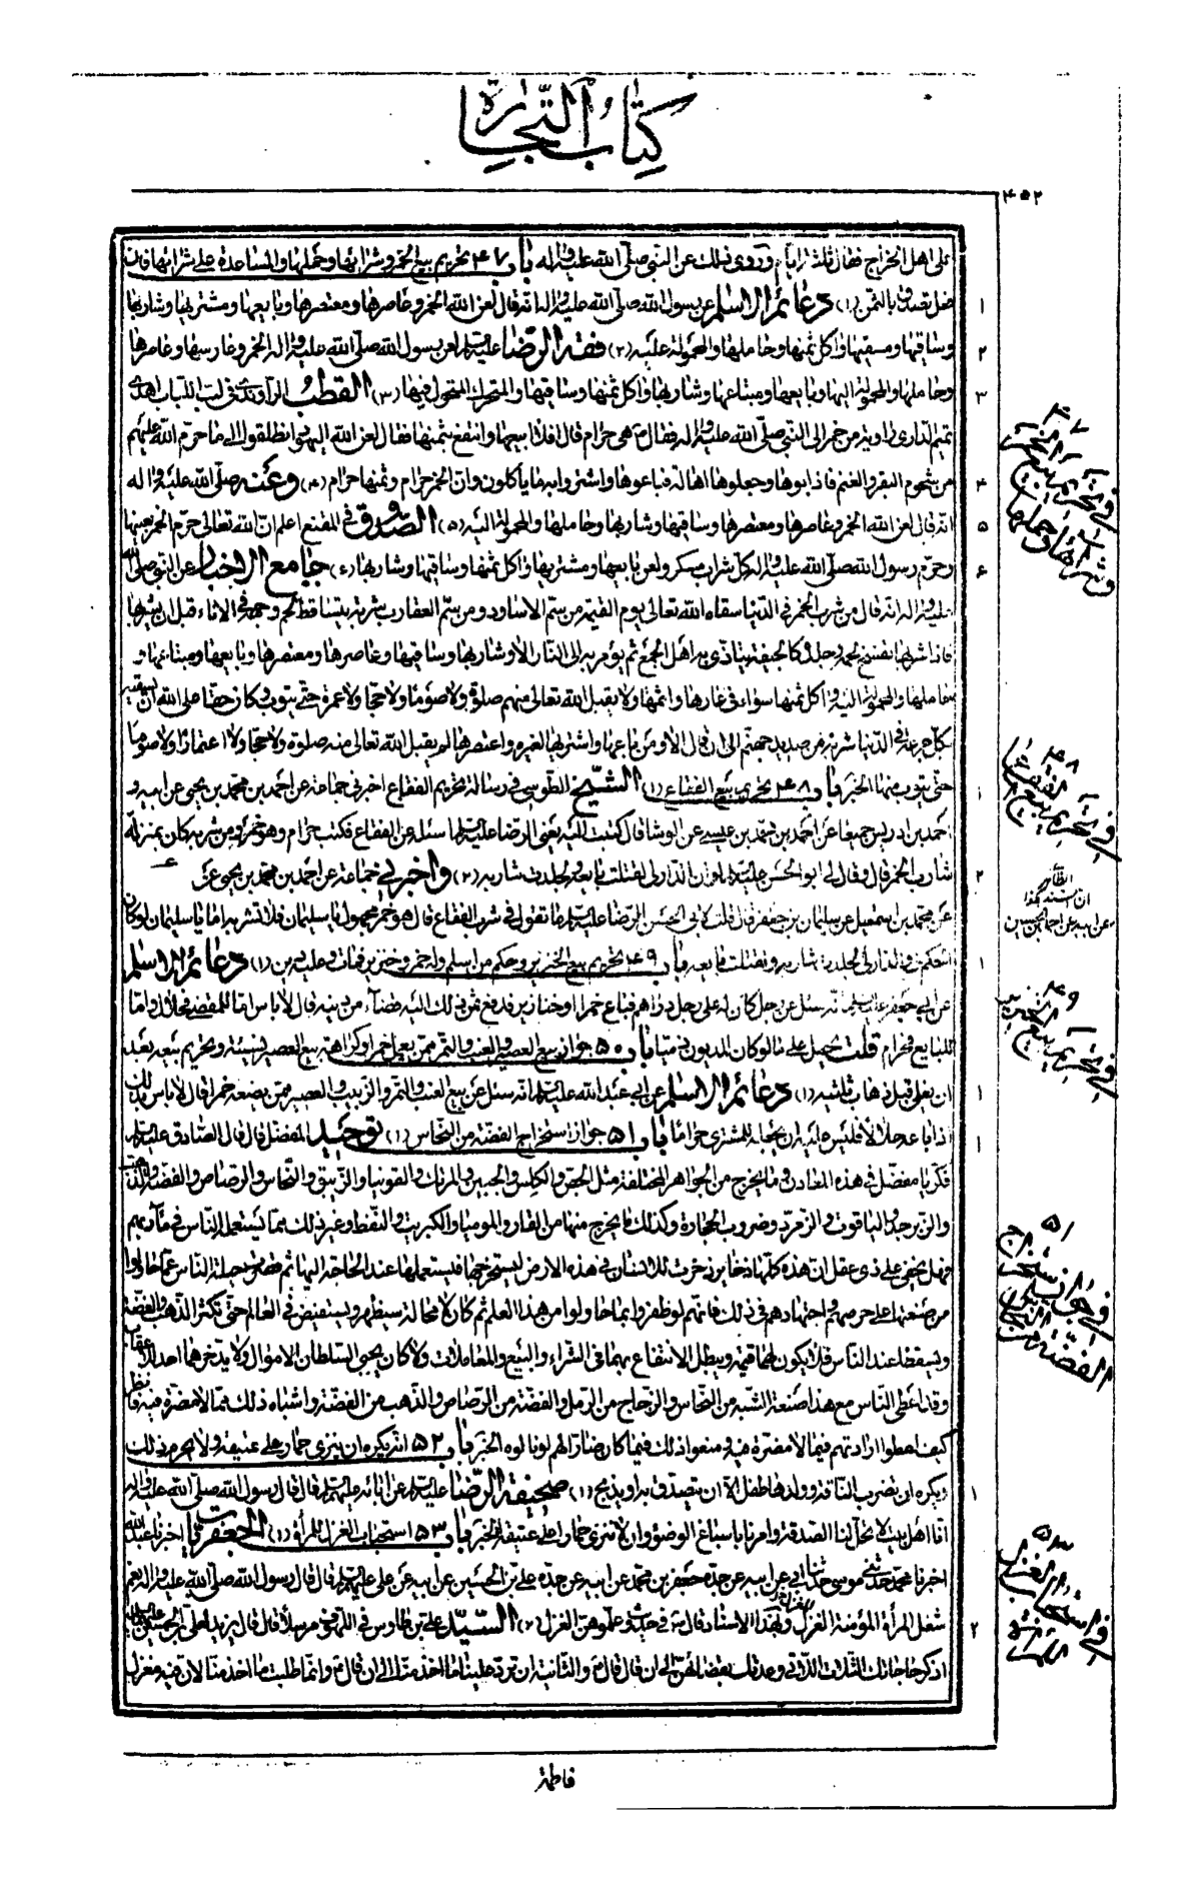 كتاب التجارة
٤٥٢
على اهل الخراج فقال ثلثة ايام وروى ذلك عن النبي صلى الله عليه واله باب ٤٧ تحريم بيع الخمر وشرائها وحملها والمساعدة على شرائها فان
فعل تصدق بالثمن (١) دعائم الاسلام عن رسول الله صلى الله عليه واله انه قال لعن الله الخمر وعاصرها ومعتصرها وبايعها ومشتريها وشاربها
وساقيها ومسقيها واكل ثمنها وحاملها والمحمولة عليه (٢) فقه الرضا عليه السلام لعن رسول الله صلى الله عليه واله الخمر وغارسها وعاصرها
وحاملها والمحمولة اليها وبايعها ومبتاعها وشاربها واكل ثمنها وساقيها والمتحول فيها (٣) القطب الراوندي في لب اللباب اهدى
تميم الداري راوية من خمر الى النبي صلى الله عليه واله فقال هي حرام قال افلا ابيعها وانتفع بثمنها فقال لعن الله اليهود انطلقوا الى ما حرم الله عليهم
من شحوم البقر والغنم فاذابوها وجعلوها اهالة فباعوها واشتروا به ما ياكلون وان الخمر حرام وثمنها حرام (٤) وعنه صلى الله عليه واله
انه قال لعن الله الخمر وعاصرها ومعتصرها وساقيها وشاربها وحاملها والمحمولة اليه (٥) الصدوق في المقنع اعلم ان الله تعالى حرم الخمر بعينها
وحرم رسول الله صلى الله عليه واله كل شراب مسكر ولعن بايعها ومشتريها واكل ثمنها وساقيها وشاربها (٦) جامع الاخبار عن النبي صلى الله
عليه واله انه قال من شرب الخمر في الدنيا سقاه الله تعالى يوم القيمة من سم الاساود ومن سم العقارب شربة يتساقط لحم وجهه في الاناء قبل ان يشربها
فاذا شربها تفسخ لحمه وجلده كالجيفة يتاذى به اهل الجمع ثم يؤمر به الى النار الا وشاربها وساقيها وعاصرها ومعتصرها وبايعها ومبتاعها و
حاملها والمحمولة اليه واكل ثمنها سواء في عارها واثمها ولا يقبل الله تعالى منهم صلوة ولا صوما ولا حجا ولا عمرة حتى يتوب وكان حقا على الله ان يسقيه
بكل جرعة في الدنيا شربة من صديد جهنم الى ان قال الا ومن باعها واشتريها لغيره واعتصرها لم يقبل الله تعالى منه صلوة ولا حجا ولا اعتمارا ولا صوما
حتى يتوب منها الخبر باب ٤٨ تحريم بيع الفقاع (١) الشيخ الطوسي في رسالة تحريم الفقاع اخبرني جماعة عن احمد بن محمد بن يحيى عن ابيه و
احمد بن ادريس جميعا عن احمد بن محمد بن عيسى عن الوشا قال كتبت اليه يعني الرضا عليه السلام اسئله عن الفقاع فكتب حرام وهو خمر ومن شربه كان بمنزلة
شارب الخمر قال وقال لي ابو الحسن عليه السلام لو ان الدار لي لقتلت بايعه ولجلدت شاربه (٢) واخبرني جماعة عن احمد بن محمد بن يحيى عن
عن محمد بن اسمعيل عن سليمان بن جعفر قال قلت لابي الحسن الرضا عليه السلام ما تقول في شرب الفقاع قال هو خمر مجهول يا سليمان فلا تشربه اما يا سليمان لو كان
الحكم لي والدار لي لجلدت شاربه ولقتلت بايعه باب ٤٩ تحريم بيع الخنزير وحكم من اسلم وله خمر وخنزير فمات وعليه دين (١) دعائم الاسلام
عن ابي جعفر عليه السلام انه سئل عن رجل كان له على رجل دراهم فباع خمرا او خنازير فدفع ثمن ذلك اليه قضاء من دينه قال لا باس اما للمقضي فحلال واما
للبايع فحرام قلت يحمل على ما لو كان المديون ذميا باب ٥٠ جواز بيع العصير والعنب والتمر ممن يعمل خمرا وكراهة بيع العصير نسيئة وتحريم بيعه بعد
ان يغلي قبل ذهاب ثلثيه (١) دعائم الاسلام عن ابي عبد الله عليه السلام انه سئل عن بيع العنب والتمر والزبيب والعصير ممن يصنعه خمرا قال لا باس بذلك
اذا باعه حلالا فليس عليه ان يجعله المشتري حراما باب ٥١ جواز استخراج الفضة من النحاس (١) توحيد المفضل قال قال الصادق عليه السلام
فكر يا مفضل في هذه المعادن وما يخرج من الجواهر المختلفة مثل الجص والكلس والجبسين والمرتك والقونيا والزيبق والنحاس والرصاص والفضة والذهب
والزبرجد والياقوت والزمرد وضروب الحجارة وكذلك ما يخرج منها من القار والموميا والكبريت والنفط وغير ذلك مما يستعمله الناس في مآربهم
فهل يخفى على ذي عقل ان هذه كلها ذخاير ذخرت للانسان في هذه الارض ليستخرجها فيستعملها عند الحاجة اليها ثم قصرت حيلة الناس عما حاولوا
من صنعتها على حرصهم واجتهادهم في ذلك فانهم لو ظفروا بما حاولوا من هذا العلم ثم كان لا محالة سيظهر ويستفيض في العالم حتى تكثر الذهب والفضة
ويسقطا عند الناس فلا يكون لهما قيمة ويبطل الانتفاع بهما في الشراء والبيع والمعاملات ولا كان يجبي السلطان الاموال ولا يدخرهما احد للاعقاب
وقد اعطى الناس مع هذا صنعة الشبه من النحاس والزجاج من الرمل والفضة من الرصاص والذهب من الفضة واشباه ذلك مما لا مضرة فيه فانظر
كيف اعطوا ارادتهم فيما لا مضرة فيه ومنعوا ذلك فيما كان ضارا لهم لو نالوه الخبر باب ٥٢ انه يكره ان ينزى حمار على عتيقة ولا يحرم ذلك
ويكره ان يضرب الناقة وولدها طفل الا ان يتصدق به او يذبح (١) صحيفة الرضا عليه السلام عن ابائه عليهم السلام قال قال رسول الله صلى الله عليه واله
انا اهل بيت لا تحل لنا الصدقة وامرنا باسباغ الوضوء وان لا ننزى حمارا على عتيقة الخبر باب ٥٣ استحباب الغزل للمرأة (١) الجعفريات اخبرنا عبد الله
اخبرنا محمد حدثني موسى حدثنا ابي عن ابيه عن جده جعفر بن محمد عن ابيه عن جده علي بن الحسين عن ابيه عن علي عليهم السلام قال قال رسول الله صلى الله عليه واله نعم
شغل المرأة المؤمنة الغزل وبهذا الاسناد قال في حديث وعلموهن الغزل (٢) السيد علي بن طاوس في اللهوف مرسلا قال قال يزيد لعلي بن الحسين عليهما السلام
اذكر حاجاتك الثلث اللاتي وعدتك بقضائهن الى ان قال قال والثانية ان ترد علينا ما اخذ منا الى ان قال وانما طلبت ما اخذ منا لان فيه مغزل
٤٧
في تحريم بيع الخمر
وشرائها وحملها
٤٨
في تحريم بيع الفقاع
الظاهر
ان السند هكذا
عن ابيه عن احمد بن الحسين
٤٩
في تحريم بيع الخنزير
٥١
في جواز استخراج
الفضة من النحاس
٥٣
في استحباب الغزل
للمرأة
فاطمة